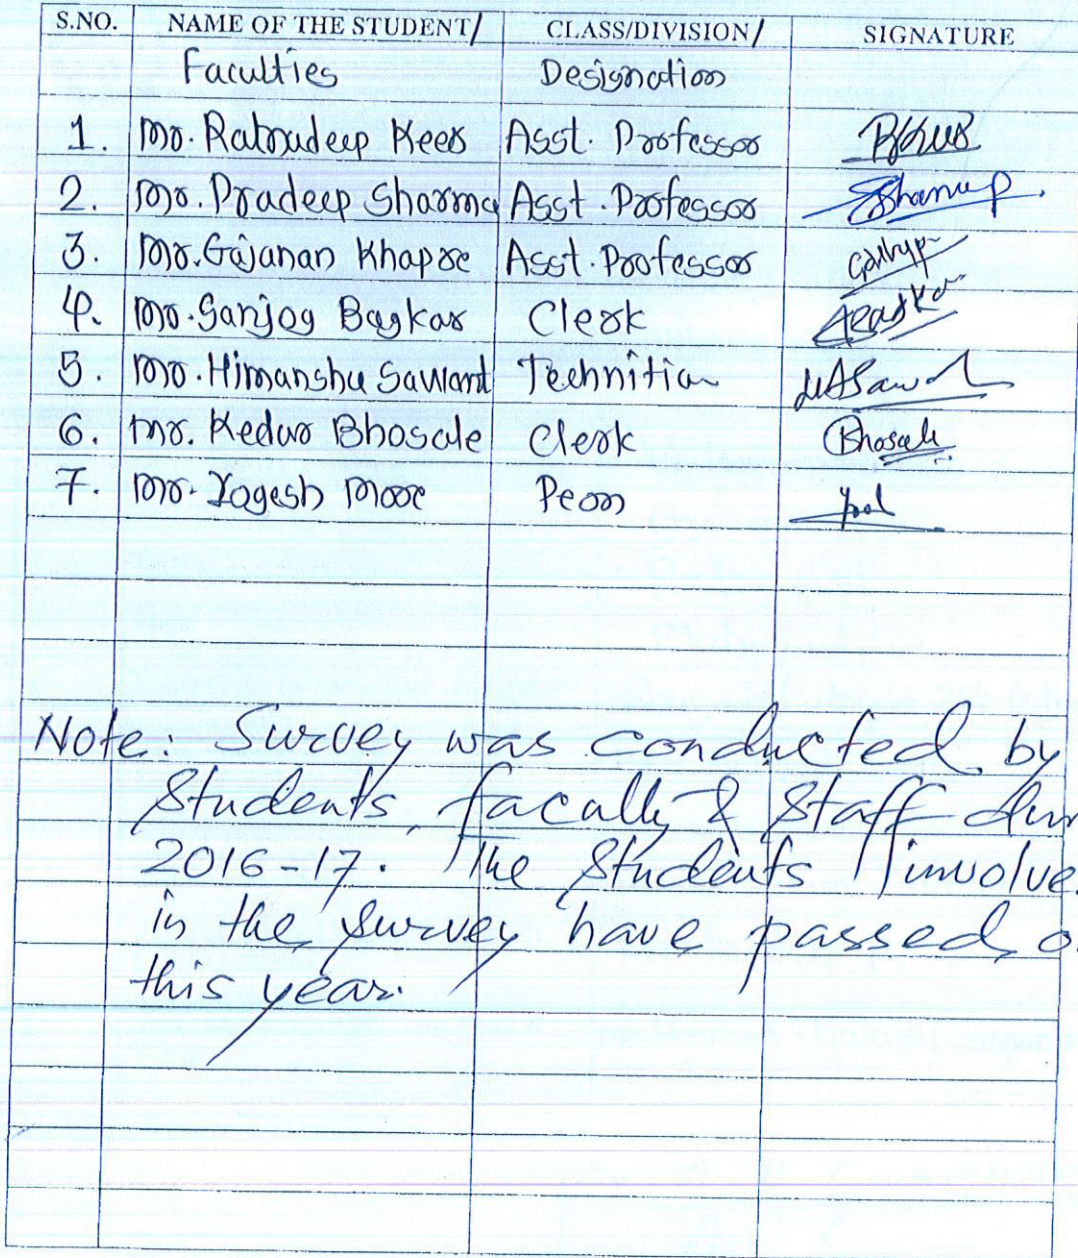 S.NO. NAME OF THE STUDENT/ CLASS/DIVISION/ SIGNATURE
Faculties Designation
1. Mr. Ratnadeep Keer Asst. Professor
2. Mr. Pradeep Sharma Asst. Professor Sharma
3. Mr. Gajanan Khapre Asst. Professor
4. Mr. Sanjog Bagkar Clerk
5. Mr. Himanshu Sawant Technitian
6. Mr. Kedar Bhosale Clerk Bhosale
7. Mr. Yogesh More Peon
Note: Survey was conducted by
Students, faculty & Staff
2016-17. The Students involve
in the survey have passed
this year.